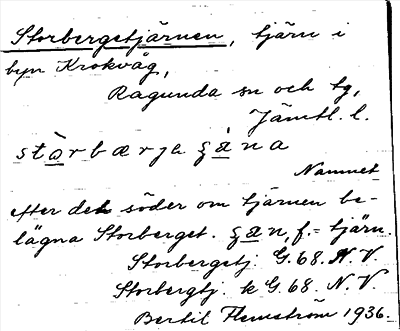 Storbergstjärnen, tjärn i
byn Krokvåg,
Ragunda sn och tg,
Jämtl. l.
Namnet
efter det söder om tjärnen be-
lägna Storberget. f. = tjärn.
Storbergstj. G. 68. N. V.
Storbergtj. k G. 68. N. V.
Bertil Flemström 1936.